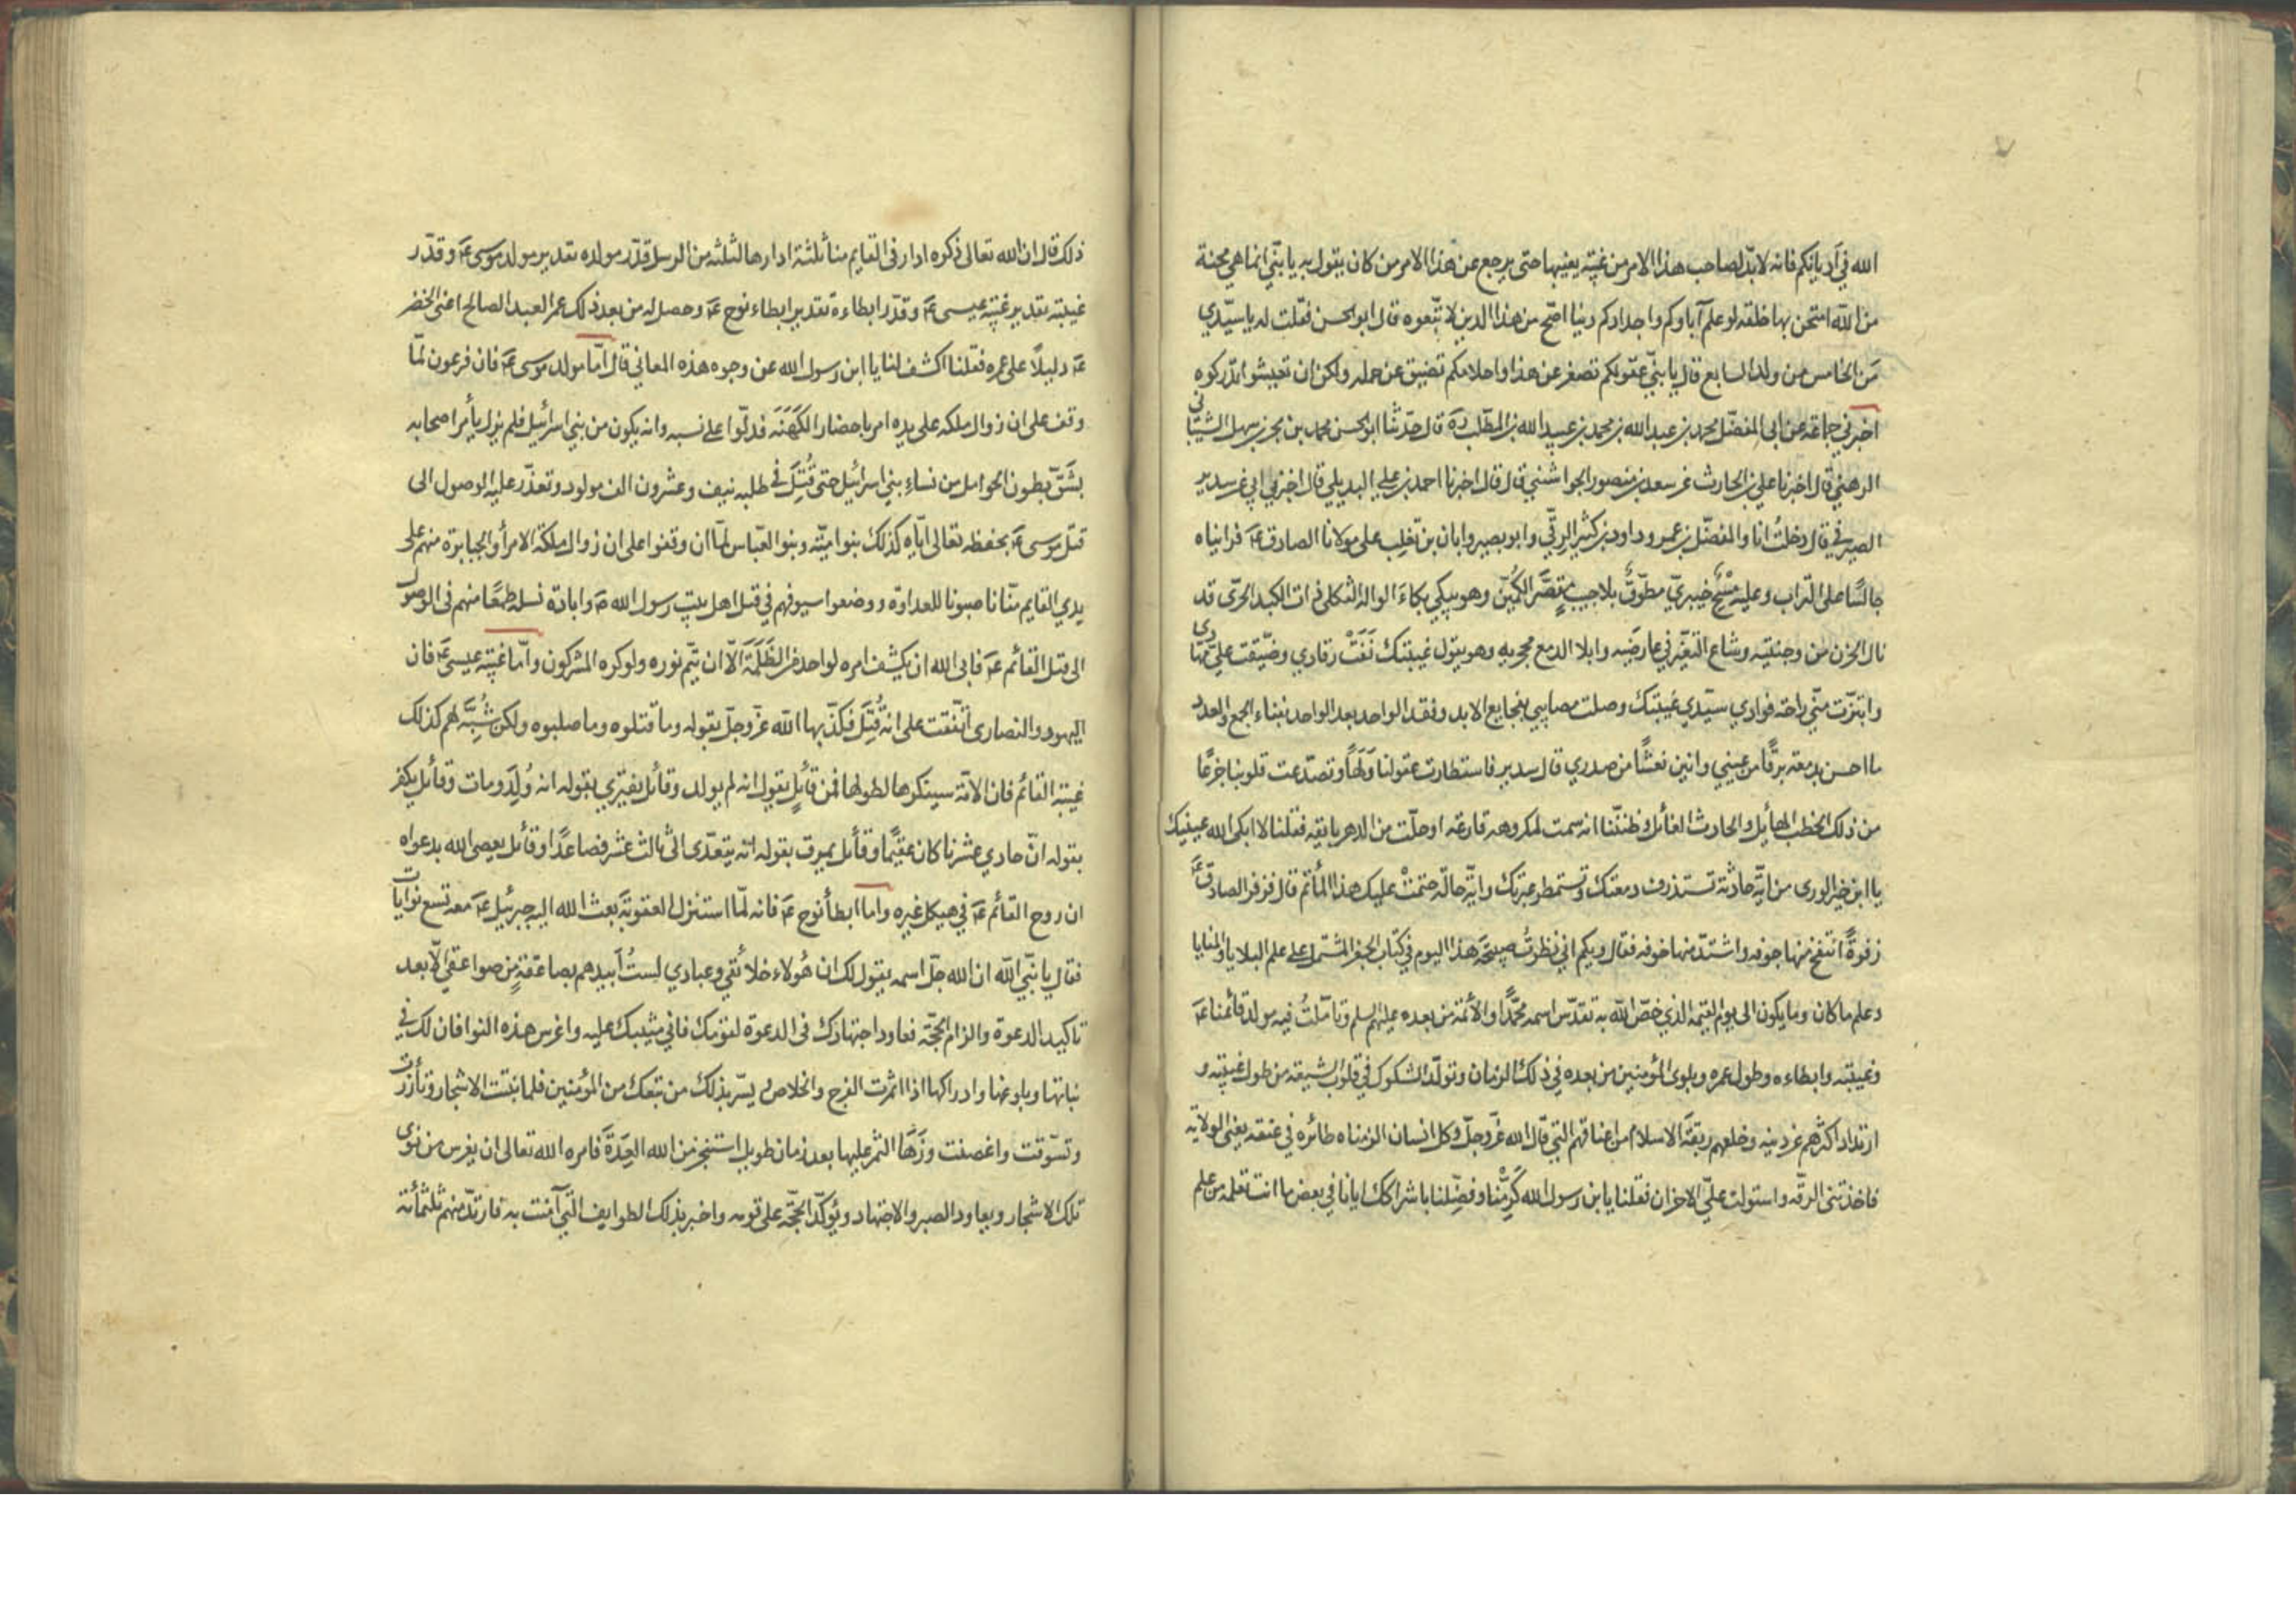 الله في أديانكم فانه لابد لصاحب هذا الامر من غيبة يغيبها حتى يرجع عن هذا الامر من كان يقول به يا بنيّ انما هي محنة
من الله امتحن بها خلقه لو علم آباوكم واجدادكم دينا اصحّ من هذا الدين لاتبعوه قال ابو الحسن فقلت له يا سيّدي
مَن الخامس من ولد السابع قال يا بنيّ عقولكم تصغر عن هذا واحلامكم تضيق عن حمله ولكن ان تعيشوا تدركوه
اخبرني جماعة عن ابي المفضّل محمد بن عبد الله بن محمد بن عبيد الله بن المطّلب ره قال حدّثنا ابو الحسن محمد بن بحر بن سهل الشيباني
الرهني قال اخبرنا علي بن الحارث عن سعد بن منصور الجواشني قال قال اخبرنا احمد بن علي البديلي قال اخبرني ابي عن سدير
الصيرفي قال دخلتُ انا والمفضّل بن عمر وداود بن كثير الرقّي وابو بصير وابان بن تغلب على مولانا الصادق ع فرايناه
جالسًا على التراب وعليه مِسْحٌ خيبريّ مطوّقٌ بلا جيب مقصّر الكمّين وهو يبكي بكاءَ الواله الثكلى ذات الكبد الحرّى قد
نال الحزن من وجنتيه وشاع التغيّر في عارضيه وابلا الدمع محجريه وهو يقول غيبتك نَفَتْ رقادي وضيّقت عليّ مهادي
وابتزّت منّي راحة فوادي سيّدي غيبتك وصلت مصايبي بفجايع الابد وفقد الواحد بعد الواحد بفناء الجمع والعدد
ما احسن بدمعة ترقأ من عيني وانين نعشًا من صدري قال سدير فاستطارت عقولنا وَلَهًا وتصدّعت قلوبنا جزعًا
من ذلك الخطب الهائل والحادث الغائل وظننّنا انه سمت لمكروهه قارعة او حلّت من الدهر بايقه فقلنا لا ابكى الله عينيك
يا ابن خير الورى من ايّة حادثة تستذرف دمعتك وتستمطر عبرتك وايّة حالة حتمتْ عليك هذا المأتم قال فزفر الصادق ع
زفرةً انتفخ منها جوفه واشتدّ منها خوفه فقال ويكم اني نظرتُ صبيحةَ هذا اليوم في كتاب الجفر المشتمل على علم البلايا والمنايا
وعلم ما كان وما يكون الى يوم القيمة الذي خصّ الله به تقدّس اسمه محمّدًا والائمة من بعده عليهم السلم وتأمّلتُ فيه مولد قائمنا ع
وغيبته وابطاءه وطول عمره وبلوى المؤمنين من بعده في ذلك الزمان وتولّد الشكوك في قلوب الشيعة من طول غيبته و
ارتداد اكثرهم عن دينه وخلعهم ربقة الاسلام من اعناقهم التي قال الله عزّ وجلّ وكل انسان الزمناه طائره في عنقه يعني الولاية
فاخذتني الرقّه واستولت عليّ الاحزان فقلنا يا بن رسول الله كَرِّمْنا وفضّلنا باشراكك ايانا في بعض ما انت تعلمه من علم
ذلك قال ان الله تعالى ذكره ادار في القايم منا ثلثة ادارها لثلثه من الرسل قدّر مولده تقدير مولد موسى ع وقدّر
غيبته تقدير غيبة عيسى ع وقدّر ابطاءه تقدير ابطاء نوح ع وحصل له من بعد ذلك عمر العبد الصالح اعني الخضر
ع دليلاً على عمره فقلنا اكشف لنا يا ابن رسول الله عن وجوه هذه المعاني قال امّا مولد موسى ع فان فرعون لمّا
وقف على ان زوال ملكه على يده امر باحضار الكَهَنَة فدلّوا على نسبه وانه يكون من بني اسرائيل فلم يزل يأمر اصحابه
بشَقّ بطون الحوامل من نساء بني اسرائيل حتى قُتِلَ في طلبه نيف وعشرون الف مولود وتعذّر عليه الوصول الى
قتل موسى ع بحفظه تعالى ايّاه كذلك بنو اميّه وبنو العبّاس لمّا ان وقفوا على ان زوال مملكة الامرأ والجبابرة منهم على
يدي القايم منّا ناصبونا للعداوة ووضعوا سيوفهم في قتل اهل بيت رسول الله ص وابادة نسله طمعًا منهم في الوصول
الى قتل القائم ع فابى الله ان يكشف امره لواحد من الظَلَمَة الّا ان يتم نوره ولو كره المشركون وامّا غيبة عيسى ع فان
اليهود والنصارى اتّفقت على انه قُتِل فكذّبها الله عزّ وجلّ بقوله وما قتلوه وما صلبوه ولكن شُبّهَ لهم كذلك
غيبة القائم فان الامّة ستنكرها لطولها فمن قائلٍ يقول انه لم يولد وقائل يفتري بقوله انه وُلِدَ ومات وقائل يكفر
بقوله انّ حادي عشرنا كان عقيمًا وقائل يمرق بقوله انه يتعدّى الى ثالث عشر فصاعدًا وقائل يعصي الله بدعواه
ان روح القائم ع في هيكل غيره واما ابطأ نوح ع فانه لمّا استنزل العقوبة بعث الله اليه جبرئيل ع معه تسع نوايات
فقال يا نبيّ الله ان الله جلّ اسمه يقول لك ان هُولاء خلائقي وعبادي لستُ اُبيدهم بصاعقةٍ من صواعقي الّا بعد
تاكيد الدعوة والزام الحجّة فعاود اجتهادك في الدعوة لقومك فاني مثيبك عليه واغرس هذه النوا فان لك في
نباتها وبلوغها وادراكها اذا اثمرت الفرج والخلاص يسّر بذلك من تبعك من المؤمنين فلما نبتت الاشجار وتأزرت
وتسوّقت واغصنت وزَهَا الثمر عليها بعد زمان طويل استنجز من الله العِدَةَ فامره الله تعالى ان يغرس من نوى
تلك الاشجار ويعاود الصبر والاجتهاد ويؤكّد الحجّة على قومه واخبر بذلك الطوايف التي آمنت به فارتدّ منهم ثلثمائة